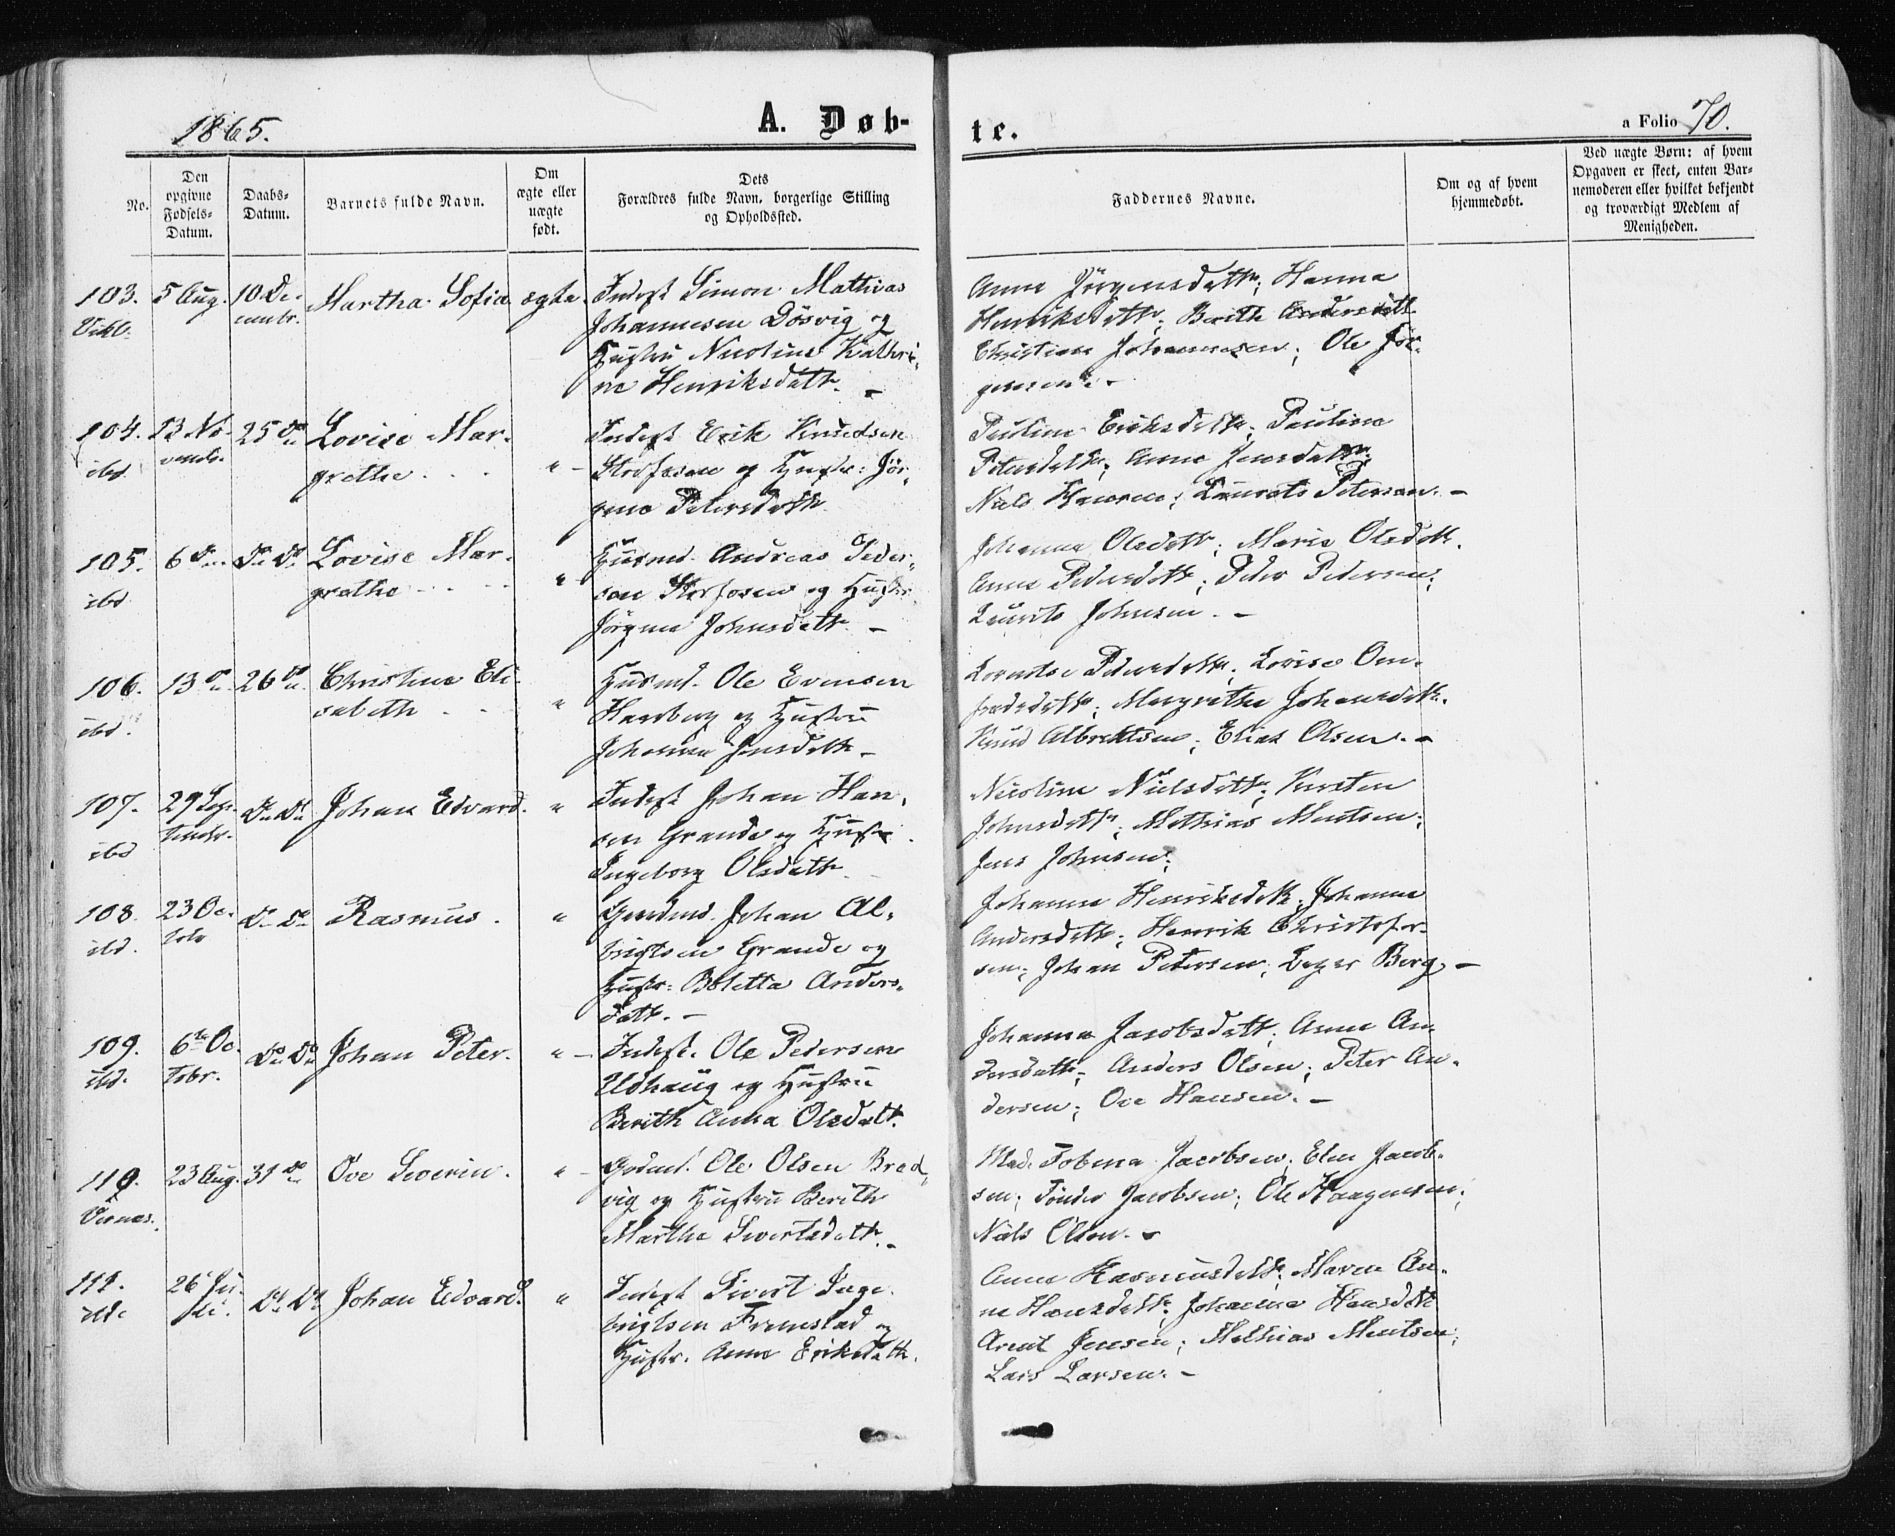 1865.
A. Døb-
te.
a Folio 70.
No.
Den
opgivne
Fødsels-
Datum.
Daabs-
Datum.
Barnets fulde Navn.
Om
ægte eller
uægte
født.
Dets
Forældres fulde Navn, borgerlige Stilling
og Opholdssted.
Faddernes Navne.
Om og af hvem
hjemmedøbt.
Ved uægte Børn: af hvem
Opgaven er skeet, enten Bar-
nemoderen eller hvilket bekjendt
og troværdigt Medlem af
Menigheden.
103.
5 Aug.
10 De-
cembr.
Martha Sofia
ægte.
Inderst Simon Mathias
Johannesen Døsvig og
Hustru Nicoline Kathri-
ne Henriksdatt. -
Anne Jørgensdattr; Hanna
Henriksdattr; Berith Andersdatt.
Christian Johannesen; Ole Jør-
gensen. -
104.
ibd
13 No-
vembr.
25 Do
Lovise Mar-
grethe
"
Inderst Erik Knudsen
Storfosen og Hustr: Jør-
gine Petersdattr
Pauline Eriksdattr; Pauline
Petersdattr; Anne Jensdattr;
Niels Hansen; Laurits Petersen. -
105.
ibd
6 Do
Do Do
Lovise Mar-
grethe
"
Husmd. Andreas Peder-
sen Storfosen og Hustr
Jørgine Johnsdattr -
Johanna Olsdattr; Marie Olsdatt.
Anne Pedersdattr; Peder Pedersen;
Laurits Johnsen. -
106.
ibd.
13 Do
26 Do
Christine Eli-
sabeth
"
Husmd. Ole Evensen
Harsberg og Hustru
Johanna Jensdattr -
Lorentse Pedersdattr; Lovise On-
Margrethe Johansdattr.
Knud Albrektsen; Elias Olsen. -
107.
ibd
29 Sep-
tembr.
Do Do
Johan Edvard.
"
Inderst Johan Han-
sen Grande og Hustr
Ingeborg Olsdattr
Nicoline Nielsdattr; Kirsten
Johnsdattr; Mathias Mentsen;
Jens Johnsen;
108.
ibd.
23 Oc-
tobr
Do Do
Rasmus.
"
Gaardmd. Johan Al-
brigtsen Grande og
Hustr: Boletta Anders-
datt. -
Johanna Henriksdattr; Johanna
Andersdattr; Henrik Christofer-
sen; Johan Petersen; Berg. -
109.
ibd.
6te Oc-
tobr.
Do Do
Johan Peter.
"
Inderst. Ole Pedersen
Udhaug og Hustru
Berith Anna Olsdatt.
Johanna Jacobsdatt; Anne An-
dersdattr; Anders Olsen; Peter An-
dersen; Ove Hansen. -
110.
23 Aug.
31 Do
Ove Severin.
"
Ole Olsen Bred-
vig og Hustru Berith
Martha Sivertsdattr. -
Mad. Tobina Jacobsen; Elen Jacob-
sen; Tønder Jacobsen; Ole Haagensen;
Niels Olsen. -
111.
ibd.
26 Ju-
li.
Do Do
Johan Edvard.
"
Inderst Sivert Inge-
brigtsen Fremstad og
Hustr. Anne Eriksdattr.
Anne Rasmusdattr; Maren An-
ne Hansdattr; Johanna Hansdatt.
Arnt Jensen; Mathias Mentsen;
Lars Larsen. -